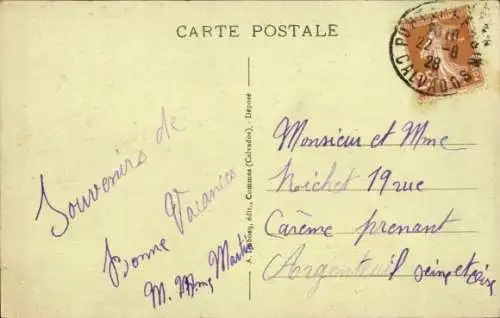 CARTE POSTALE
Souvenirs de
Bonne Vacances
M. Mme Martin
édit., Commes (Calvados). - Déposé
22 - 8
28
CALVADOS
Monsieur et Mme
Richet 19 rue
Carème prenant
Argenteuil Seine et Oise